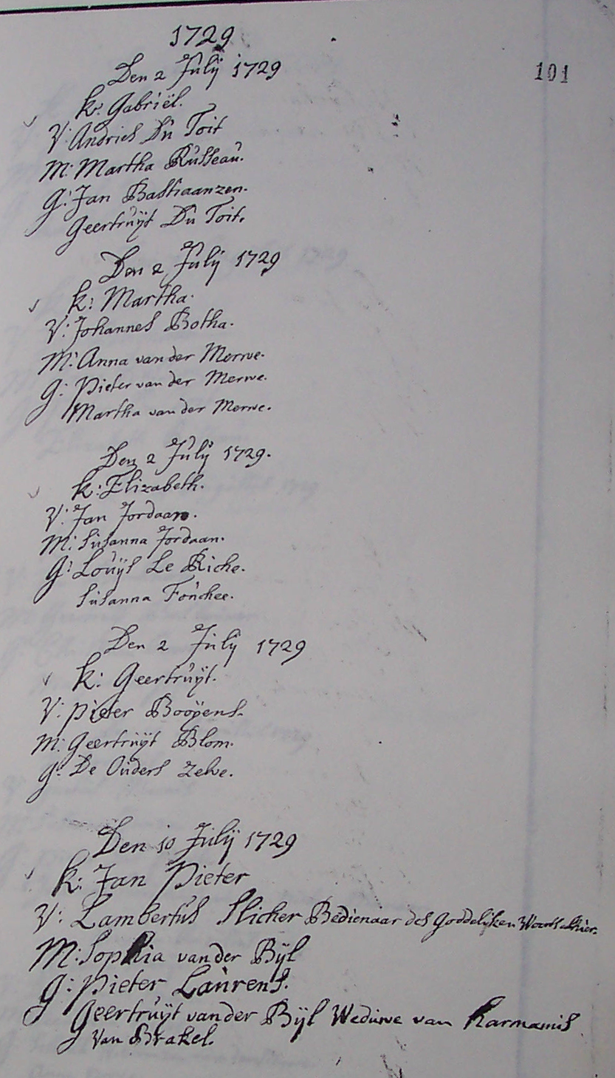 1729
101
Den 2 Julÿ 1729
k: Gabriël.
V: Andries Du Toit
M: Martha Russeau.
G: Jan Bastiaanzen.
Geertruÿt Du Toit.
Den 2 Julÿ 1729
k: Martha.
V: Johannes Botha.
M: Anna van der Merwe.
G: Pieter van der Merwe.
Martha van der Merwe.
Den 2 Julÿ 1729.
k: Elizabeth.
V: Jan Jordaan.
M: Susanna Jordaan.
G: Louÿs Le Riche.
Susanna Fouchee.
Den 2 Julÿ 1729
k: Geertruÿt.
V: Pieter Booÿens.
M: Geertruÿt Blom.
G: De Ouders zelve.
Den 10 Julÿ 1729
k: Jan Pieter
V: Lambertus Slicher Bedienaar des Goddelyken Woorts alhier.
M: Sophia van der Bÿl
G: Pieter Laurens.
Geertruÿt van der Bÿl Weduwe van
van Brakel.